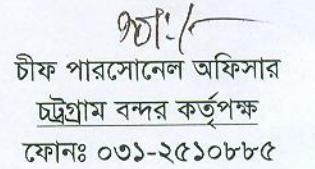 স্বাঃ/-
চীফ পারসোনেল অফিসার
চট্টগ্রাম বন্দর কর্তৃপক্ষ
ফোনঃ ০৩১-২৫১০৮৮৫